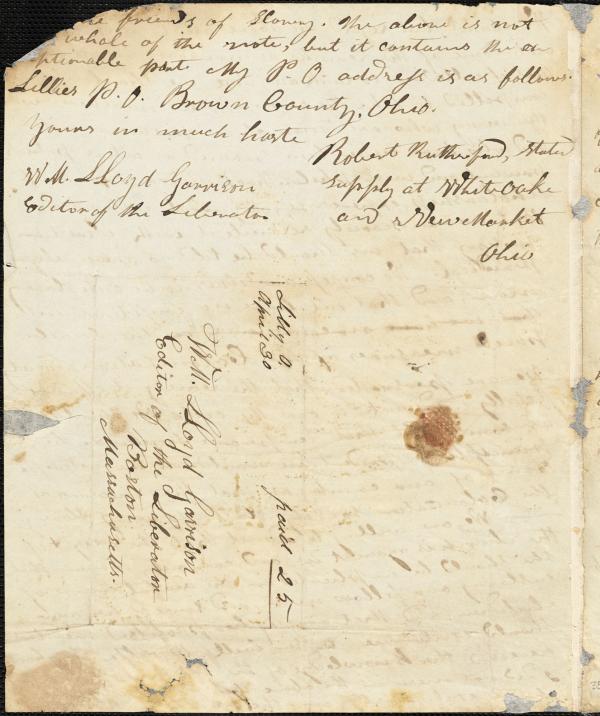 friends of Slavery. The above is not
whole of the note, but it contains the ex
ptionable part My P.O. address is as follows.
Lillies P.O. Brown County, Ohio.
Yours in much haste
Robert Rutherford, stated
supply at White Oake
and New Market
Ohio
Wm. LLoyd Garrison
Editor of the Liberator
Lilly O
Apri 30
paid 25
Wm. LLoyd Garrison
Editor of the Liberator
Boston
Massachusetts.